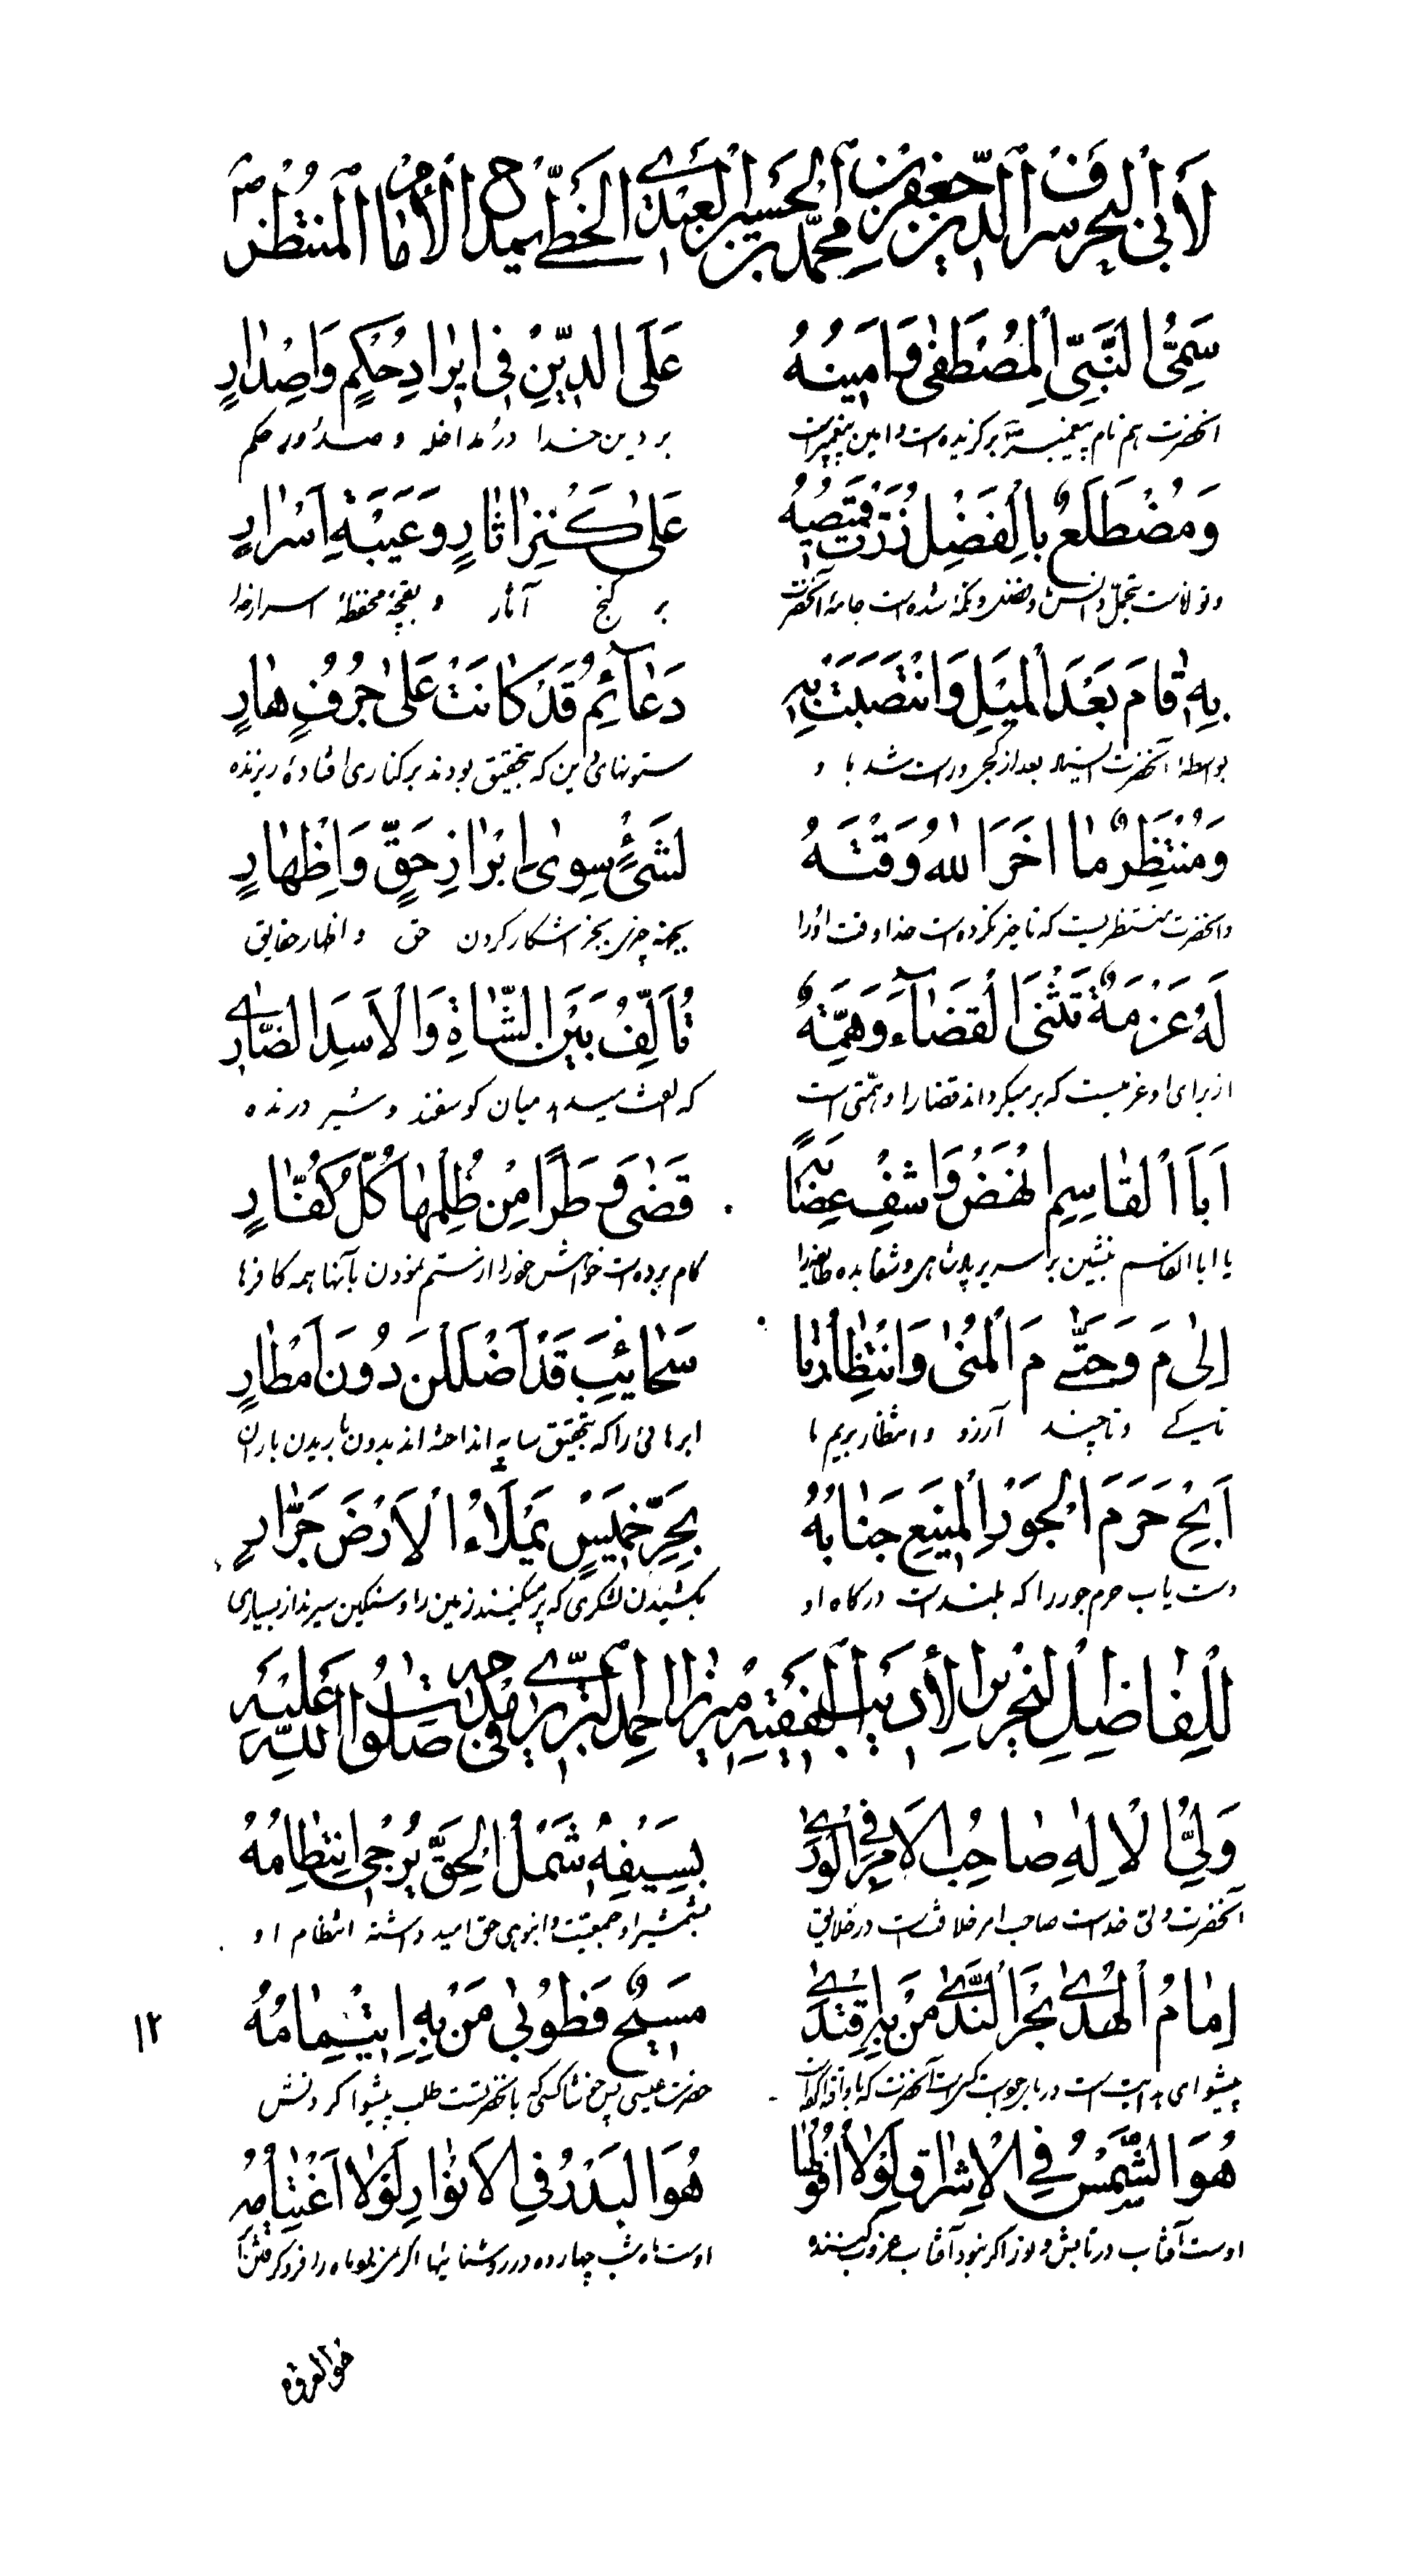 لأبی البحر شرف الدین جعفر بن محمد بن الحسین العبدی الخطی یمدح الأمام المنتظر
سَمِیُّ النَّبِیِّ الْمُصْطَفٰی وَ اَمِینُهُ عَلَی الدِّینِ فِی ایٰرادِ حُکْمٍ وَاِصْدٰارٍ
انحضرت هم نام پیغمبر برگزیده است و امین پیغمبر است بر دین خدا در مداخله و صدور حکم
وَ مُضْطَلَعٌ بِالْفَضْلِ زُرَّتْ قَمیصُهُ عَلٰی کَنْزِ اٰثٰارٍ وَ عَیْبَةِ اَسْرٰارٍ
بر گنج آثار و بقچه محفظهٔ اسرار خدا
بِهِ قٰامَ بَعْدَ الْمَیْلِ وَانْتَصَبَتْ بِهِ دَعٰآئِمُ قَدْ کٰانَتْ عَلٰی جُرُفٍ هٰارٍ
بواسطهٔ آنحضرت بعد از کجی و راست شد با و ستونهای دین که بتحقیق بودند بر کناری افتادهٔ ریزنده
وَ مُنْتَظِرٌ مٰا اَخَّرَ اللهُ وَقْتَهُ لِشَیْءٍ سِوٰی اِبْرٰازِ حَقٍّ وَ اِظْهٰارٍ
و انحضرت منتظریست که تاخیر نکرده است خدا وقت اورا بجهة چیزی بجز اشکار کردن حق و اظهار حقایق
لَهُ عَزْمَةٌ تَثْنَی الْقَضٰآءَ وَ هِمَّةٌ تُأَلِّفُ بَیْنَ الشّٰاةِ وَالْاَسَدِ الضّٰارِی
از برای او عزمیست که بر میگرداند قضا را و همّتی است که الفت میدهد میان گوسفند و شیر درنده
اَبَا الْقٰاسِمِ انْهَضْ وَ اشْفِ عِصٰابَةً قَضٰی وَطَرًا مِنْ ظُلْمِهٰا کُلُّ کُفّٰارٍ
یا ابا القاسم بنشین بر سریر پادشاهی و شفا بده طایفه را کام برده است خواهش خود را از ستم نمودن بآنها همه کافرها
اِلٰی مَ وَ حَتّٰی مَ الْمُنٰی وَانْتِظٰارُنٰا سَحٰائِبَ قَدْ اَضْلَلْنَ دُونَ اَمْطٰارٍ
تا بکی و تا چند آرزو و انتظار بریم ما ابرهائی را که بتحقیق سایه انداخته اند بدون باریدن باران
اَبِحْ حَرَمَ الْجَوْرِ الْمَنیعِ جَنٰابُهُ بِجَرِّ خَمیسٍ یَمْلَاءُ الْاَرْضَ جَرّٰارٍ
دست یاب حرم جور را که بلند است درگاه او بکشیدن لشکری که پر میکنند زمین را و سنگین سیرند از بسیاری
للفاضل النحریر الأدیب الفقیه میرزا احمد التبریزی فی مدحه صلوات الله علیه
وَلِیُّ الْاِلٰهِ صٰاحِبُ الْاَمْرِ فِی الْوَرٰی بِسَیْفِهِ شَمْلُ الْحَقِّ یُرْجٰی انْتِظٰامُهُ
آنحضرت ولیّ خداست صاحب امر خلافتست در خلایق بشمشیر او جمعیّت و انبوهی حق امید داشته انتظام او
اِمٰامُ الْهُدٰی بَحْرُ النَّدٰی مَنْ بِهِ اقْتَدٰی مَسیحٌ فَطُوبٰی مَنْ بِهِ اِیْتِمٰامُهُ
۱۲
حضرت عیسی پس خوشا کسی که بانحضرتست طلب پیشوا کردنش
هُوَ الشَّمْسُ فِی الْاِشْرٰاقِ لَوْلٰا اُفُولُهٰا هُوَ الْبَدْرُ فِی الْاَنْوٰارِ لَوْلٰا اغْتِیٰامُهُ
اوست آفتاب در تابش و نور اگر نبود آفتاب غروب کننده اوست ماه شب چهارده در روشنائیها اگر نمیبود ماه را فرو گرفتن